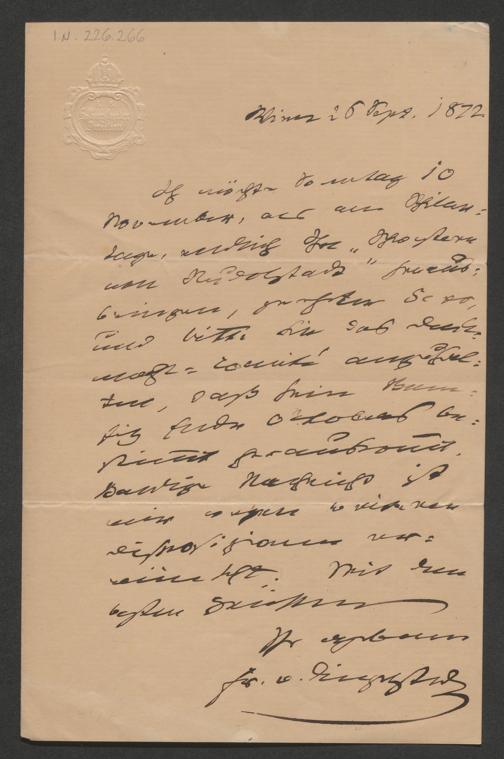 I.N. 226.266
Wien 26 Sept. 1872
Ich möchte Sonntag 10
November, als am Schiller=
tage, endlich Ihre „Schwestern
von Rudolstadt“ heraus=
bringen, geehrter
und bitte Sie das
=Comité
daß sein
Ende Octobers be=
stimmt herauskommt.
Baldige Nachricht ist
mir wegen weiterer
Dispositionen er=
wünscht. Mit den
besten Grüßen
Ihr ergebener
Fr. v. Dingelstedt